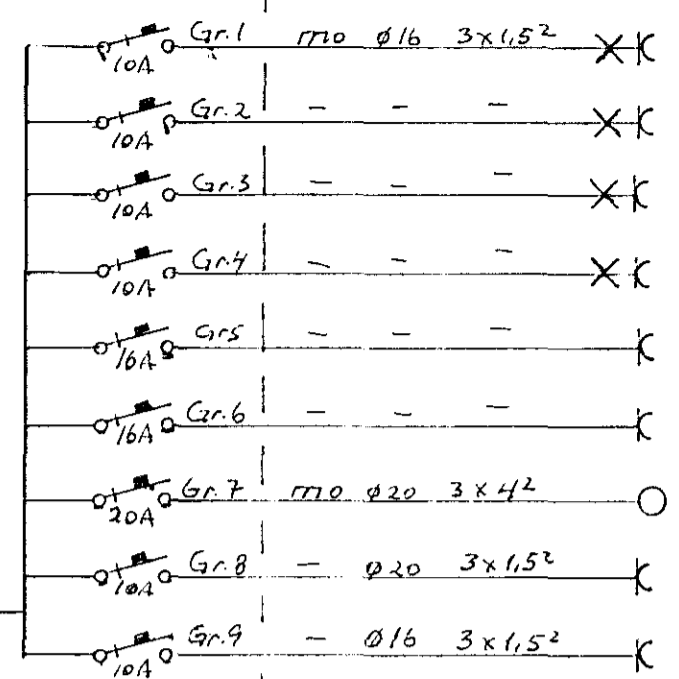 Gr.1 mo ø16 3x1,5²
10A
Gr.2 - - -
10A
Gr.3 - - -
10A
Gr.4 - - -
10A
Gr5 - - -
16A
Gr.6 - - -
16A
Gr.7 mo ø20 3x4²
20A
Gr.8 - ø20 3x1,5²
10A
Gr.9 - ø16 3x1,5²
10A